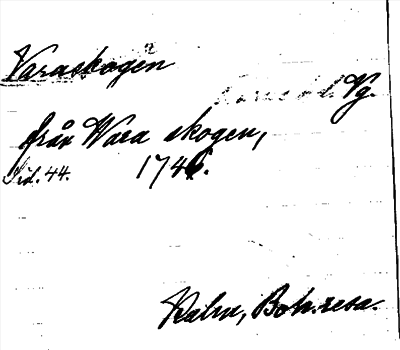 Varaskogen
Vg.
från Wara skogen,
Sid. 44. 1746.
Kalm, Boh. resa.